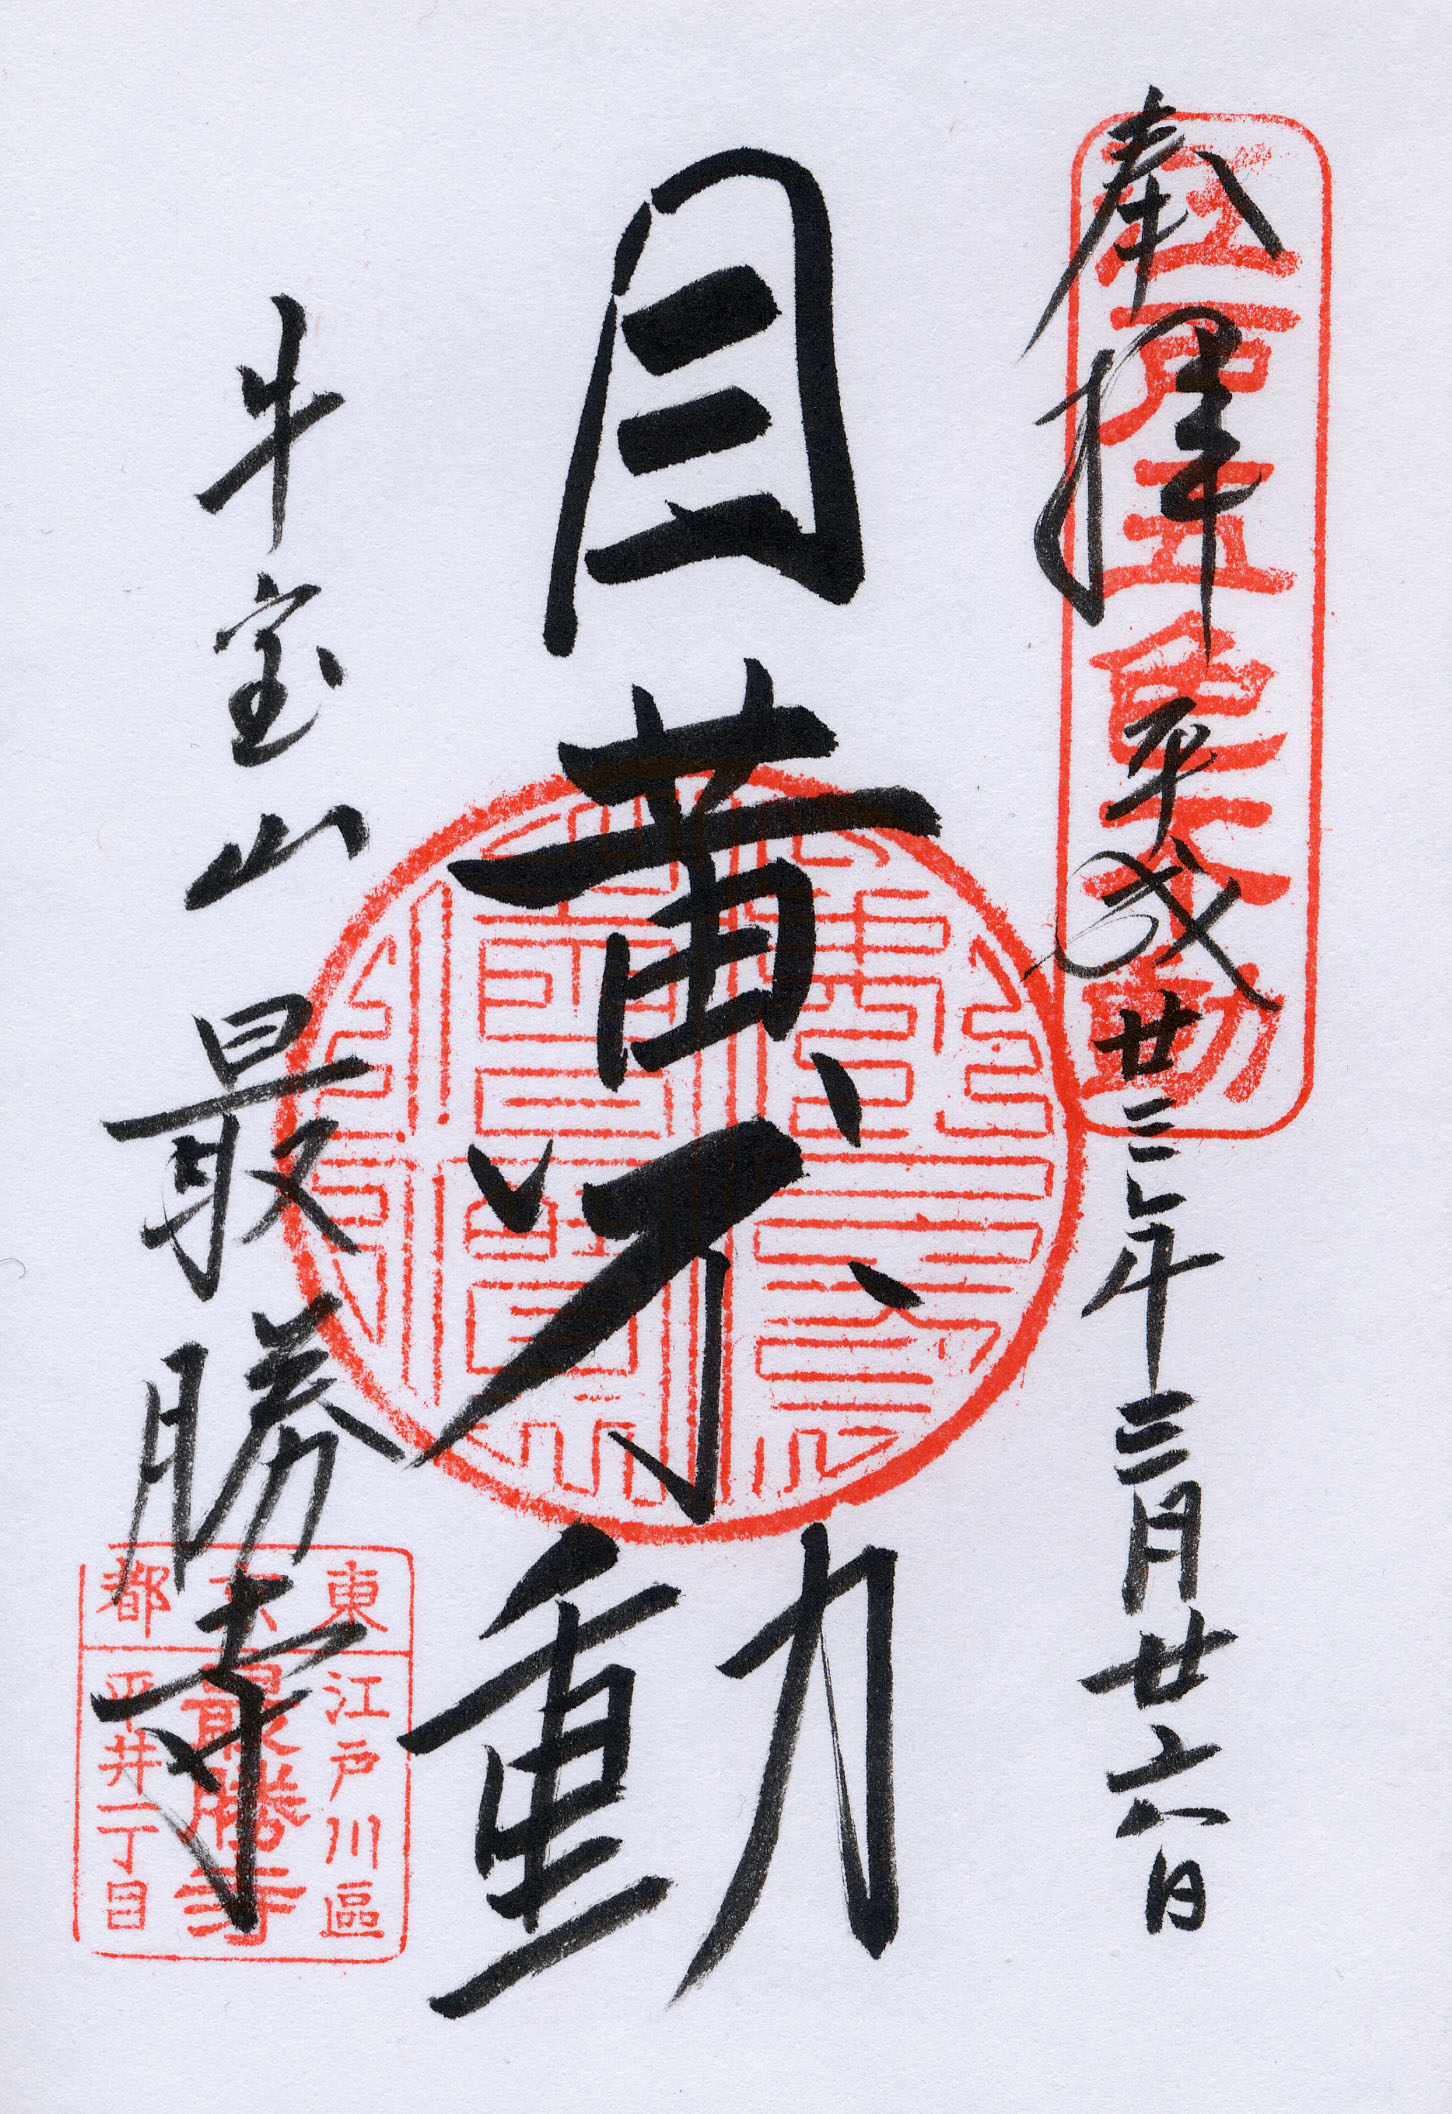 奉拝 平成廿三年三月廿六日
江戸五色不動
目黄不動
牛宝山 最勝寺
東京都
江戸川區
最勝寺
平井一丁目